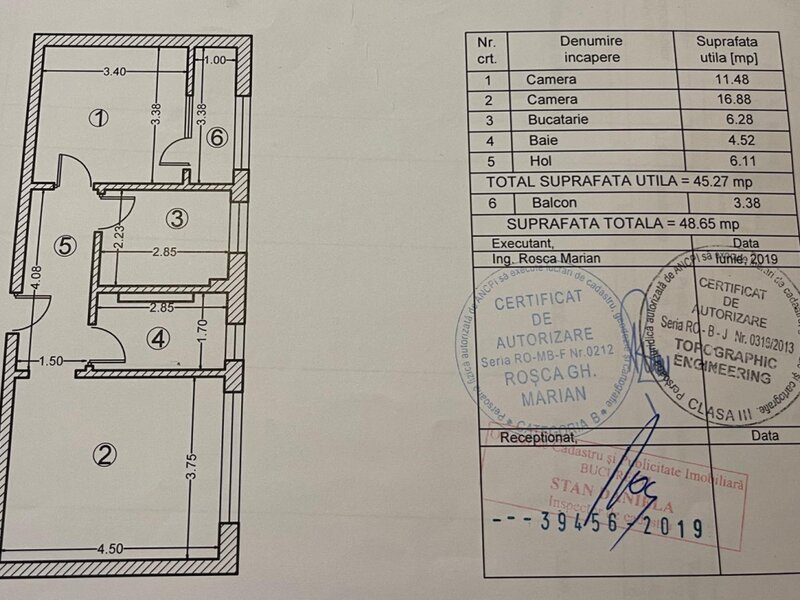 3.40
1.00
1
3.38
3.38
6
5
3
2.23
2.85
4.08
2.85
1.70
4
1.50
2
3.75
4.50
Nr. crt. Denumire incapere Suprafata utila [mp]
1 Camera 11.48
2 Camera 16.88
3 Bucatarie 6.28
4 Baie 4.52
5 Hol 6.11
TOTAL SUPRAFATA UTILA = 45.27 mp
6 Balcon 3.38
SUPRAFATA TOTALA = 48.65 mp
Executant, Data
Ing. Rosca Marian Iunie, 2019
Persoană fizică autorizată de ANCPI să execute lucrări de cadastru, geodezie și cartografie
CERTIFICAT
DE
AUTORIZARE
Seria RO-MB-F Nr.0212
ROȘCA GH.
MARIAN
CATEGORIA B
CERTIFICAT
DE
AUTORIZARE
Seria RO - B - J Nr. 0319/2013
TOPOGRAPHIC
ENGINEERING
CLASA III
Receptionat, Data
de Cadastru și Publicitate Imobiliară
STAN DANIELA
Inspector
---39456-2019